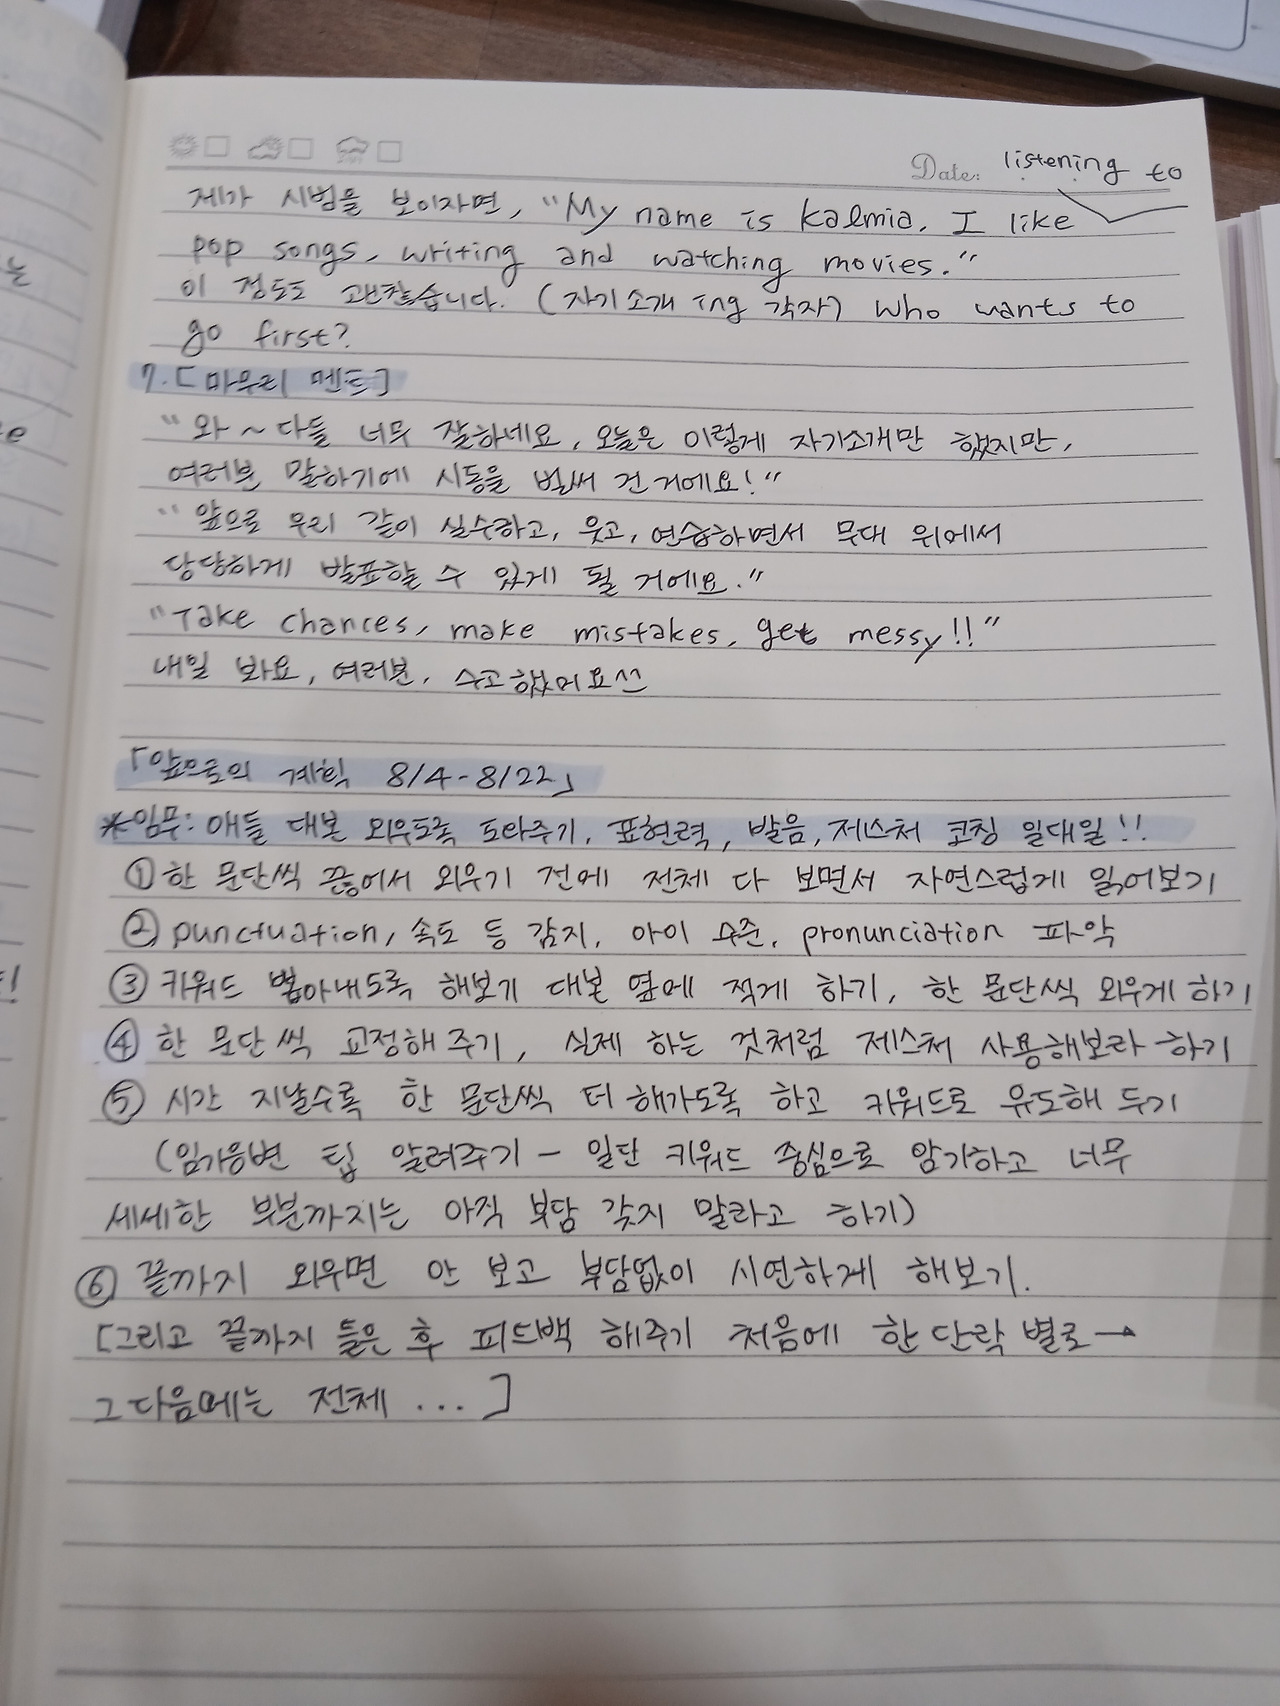 Date: listening to
제가 시범을 보이자면, "My name is kalmia, I like
pop songs, writing and watching movies."
이 정도도 괜찮습니다. (자기소개 ing 각자) Who wants to
go first?
7. [마무리 멘트]
"와~ 다들 너무 잘하네요, 오늘은 이렇게 자기소개만 했지만,
여러분 말하기에 시동을 벌써 건 거에요!"
"앞으로 우리 같이 실수하고, 웃고, 연습하면서 무대 위에서
당당하게 발표할 수 있게 될 거에요."
"Take chances, make mistakes, get messy!!"
내일 봐요, 여러분, 수고했어요
「앞으로의 계획 8/4-8/22」
*임무: 애들 대본 외우도록 도와주기, 표현력, 발음, 제스처 코칭 일대일!!
① 한 문단씩 끊어서 외우기 전에 전체 다 보면서 자연스럽게 읽어보기
② punctuation, 속도 등 감지, 아이 수준, pronunciation 파악
③ 키워드 뽑아내도록 해보기 대본 옆에 적게 하기, 한 문단씩 외우게 하기
④ 한 문단씩 교정해주기, 실제 하는 것처럼 제스처 사용해보라 하기
⑤ 시간 지날수록 한 문단씩 더 해가도록 하고 키워드로 유도해 두기
(임기응변 팁 알려주기 - 일단 키워드 중심으로 암기하고 너무
세세한 부분까지는 아직 부담 갖지 말라고 하기)
⑥ 끝까지 외우면 안 보고 부담없이 시연하게 해보기.
[그리고 끝까지 들은 후 피드백 해주기 처음에 한 단락 별로→
그 다음에는 전체 ...]